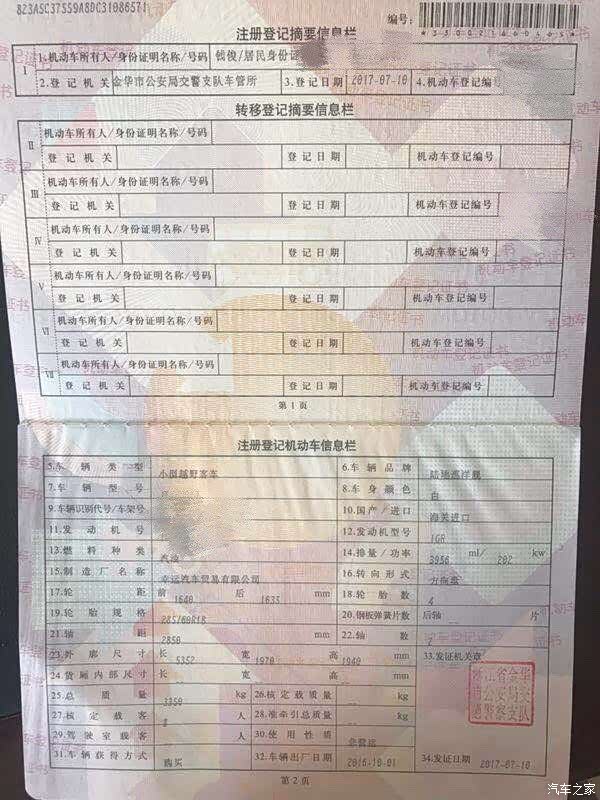 823A5C37S59A8DC31086571
编号:
注册登记摘要信息栏
I 1.机动车所有人/身份证明名称/号码 钱俊/居民身份证
2.登记机关 金华市公安局交警支队车管所 3.登记日期 2017-07-10 4.机动车登记编号
转移登记摘要信息栏
II 机动车所有人/身份证明名称/号码
登记机关 登记日期 机动车登记编号
III 机动车所有人/身份证明名称/号码
登记机关 登记日期 机动车登记编号
IV 机动车所有人/身份证明名称/号码
登记机关 登记日期 机动车登记编号
V 机动车所有人/身份证明名称/号码
登记机关 登记日期 机动车登记编号
VI 机动车所有人/身份证明名称/号码
登记机关 登记日期 机动车登记编号
VII 机动车所有人/身份证明名称/号码
登记机关 登记日期 机动车登记编号
第1页
注册登记机动车信息栏
5.车辆类型 小型越野客车 6.车辆品牌 陆地巡洋舰
7.车辆型号 8.车身颜色 白
9.车辆识别代号/车架号 10.国产/进口 海关进口
11.发动机号 12.发动机型号 1GR
13.燃料种类 汽油 14.排量/功率 3956 ml/ 202 kw
15.制造厂名称 幸运汽车贸易有限公司 16.转向形式 方向盘
17.轮距 前 1640 后 1635 mm 18.轮胎数 4
19.轮胎规格 285/60R18 20.钢板弹簧片数 后轴 片
21.轴距 2850 mm 22.轴数 2
23.外廓尺寸 长 5352 宽 1970 高 1940 mm 33.发证机关章
24.货厢内部尺寸 长 宽 高 mm
25.总质量 3350 kg 26.核定载质量 kg
27.核定载客 8 人 28.准牵引总质量 kg
29.驾驶室载客 人 30.使用性质 非营运
31.车辆获得方式 购买 32.车辆出厂日期 2016-10-01 34.发证日期 2017-07-10
浙江省金华市公安局交通警察支队
第2页
汽车之家